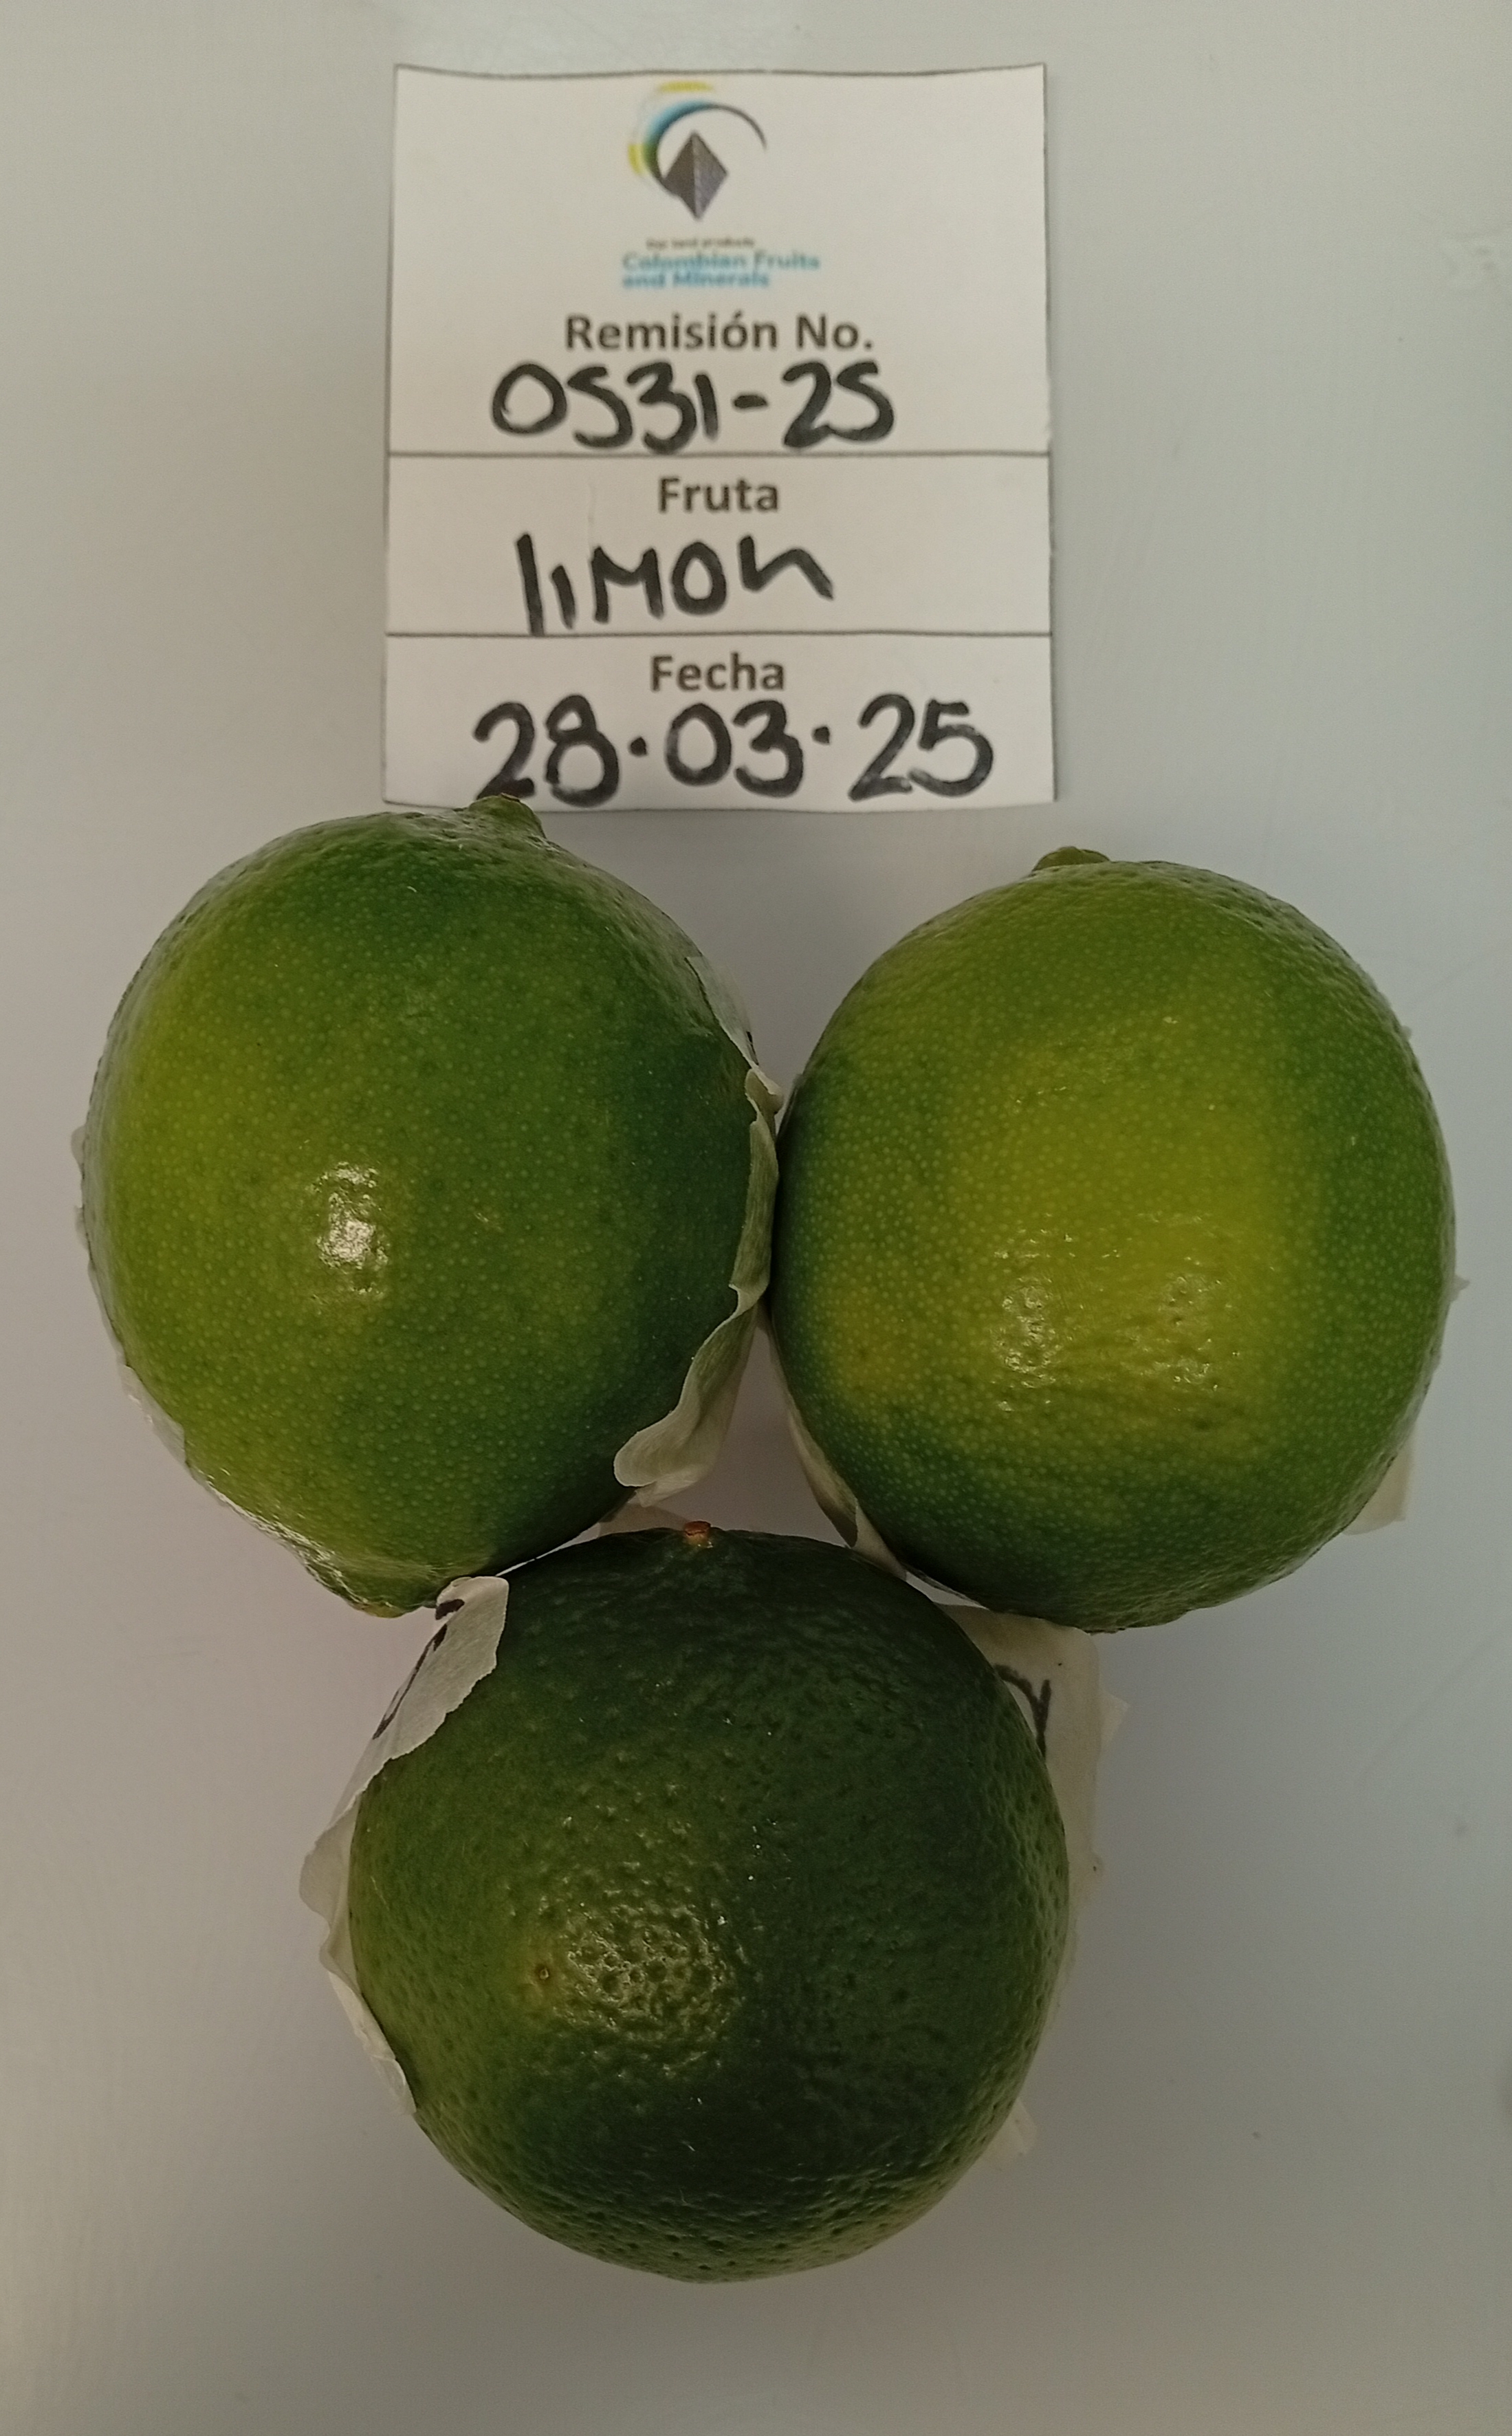 Colombian Fruits
and Minerals
Remisión No.
0531-25
Fruta
limon
Fecha
28.03.25